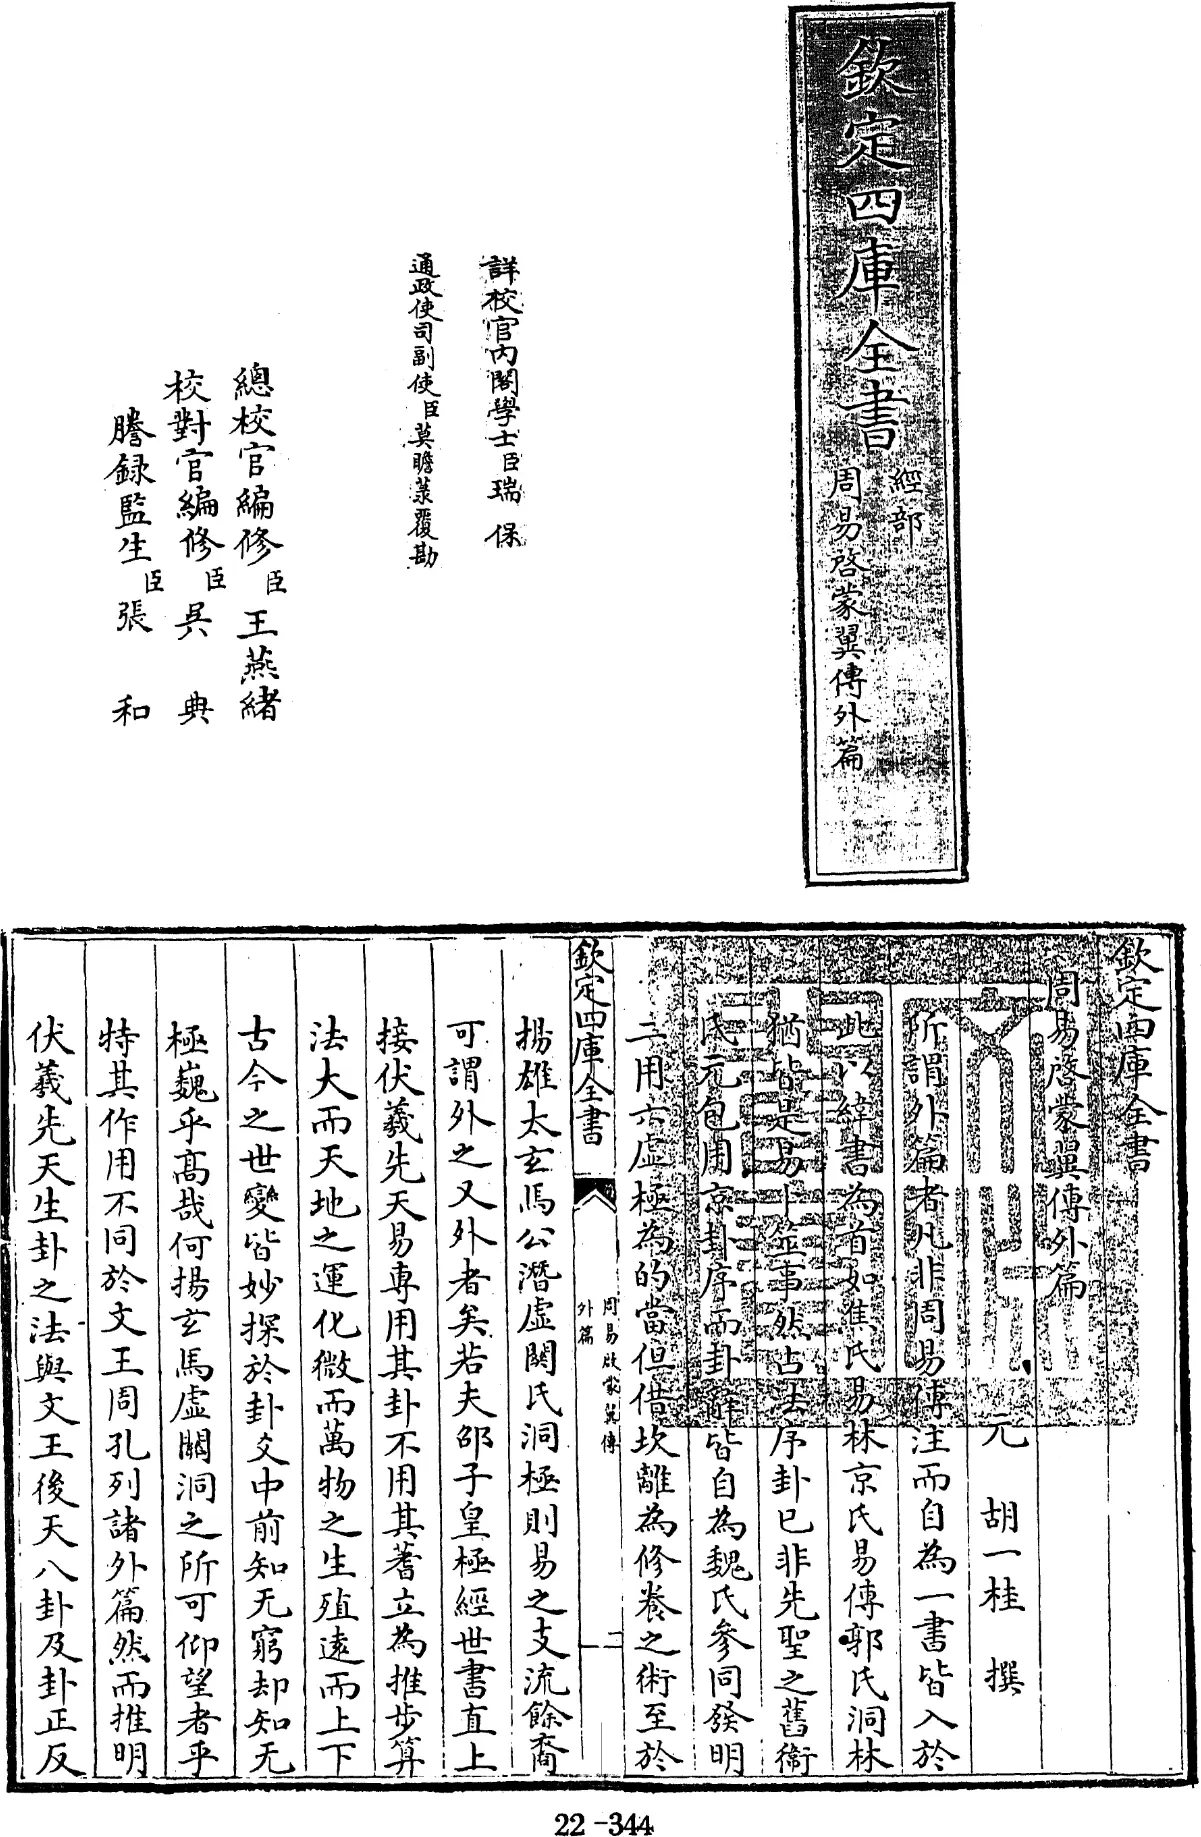 欽定四庫全書
經部
周易啓蒙翼傳外篇
詳校官內閣學士臣瑞保
通政使司副使臣莫瞻菉覆勘
總校官編修臣王燕緒
校對官編修臣吳典
謄錄監生臣張和
欽定四庫全書
周易啓蒙翼傳外篇
元 胡一桂 撰
所謂外篇者凡非周易傳注而自為一書皆入於
此以緯書為首如焦氏易林京氏易傳郭氏洞林
猶皆是易卜筮事然占法序卦已非先聖之舊衛
氏元包用京卦序而卦辭皆自為魏氏參同發明
二用六虛極為的當但借坎離為修養之術至於
欽定四庫全書
周易啟蒙翼傳
外篇
二
揚雄太玄馬公潛虛關氏洞極則易之支流餘裔
可謂外之又外者矣若夫邵子皇極經世書直上
接伏羲先天易專用其卦不用其蓍立為推步算
法大而天地之運化微而萬物之生殖遠而上下
古今之世變皆妙探於卦爻中前知无窮却知无
極巍乎高哉何揚玄馬虛關洞之所可仰望者乎
特其作用不同於文王周孔列諸外篇然而推明
伏羲先天生卦之法與文王後天八卦及卦正反
22-344